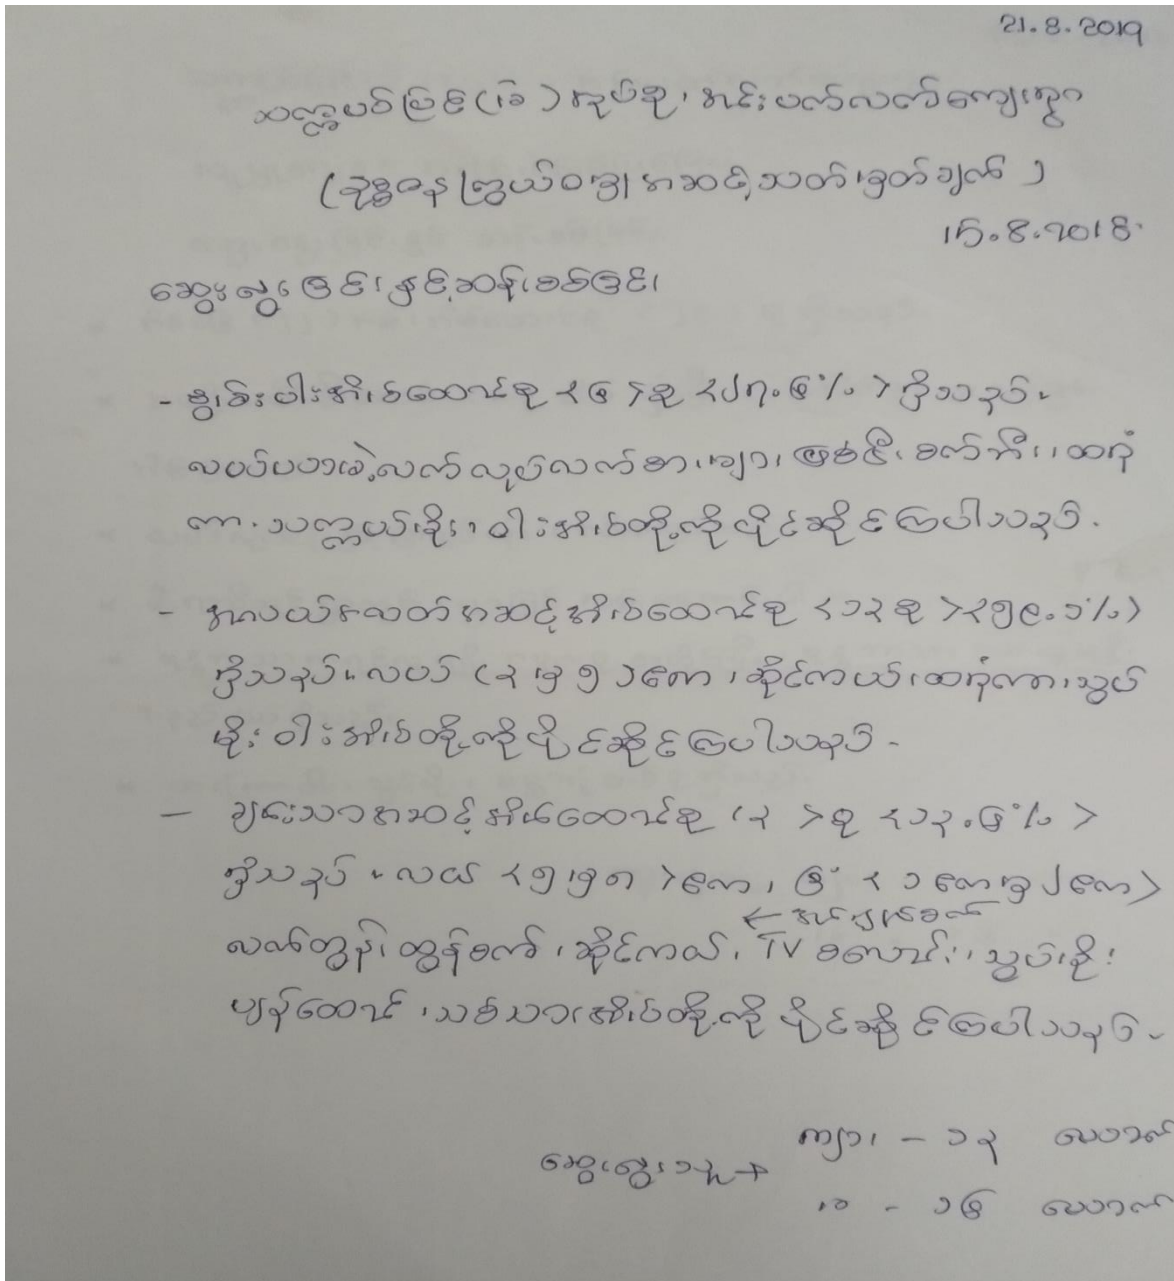 21.8.2019
သက္ကယ်ပြင် (ခ) အုပ်စု၊ အင်းပက်လက်ကျေးရွာ
(ဥစ္စာဓန ကြွယ်ဝမှု အဆင့်သတ်မှတ်ချက်)
15.8.2018.
ဆွေးနွေးခြင်းနှင့်ဆန်းစစ်ခြင်း
- နွမ်းပါးအိမ်ထောင်စု < ၆ > စု < ၂၇.၆ % > ရှိသည်။
လယ်မဲ့ လက်လုပ်လက်စားများ ဖြစ်ပြီး စက်ဘီး၊ ထရံ
ကာ၊ သက္ကယ်မိုး၊ ဝါးအိမ်တို့ကိုပိုင်ဆိုင်ကြပါသည်။
- အလယ်အလတ်အဆင့်အိမ်ထောင်စု < ၁၃ စု > < ၅၉.၁ % >
ရှိသည်။ လယ် ( ၃ မှ ၅ ) ဧက၊ ဆိုင်ကယ်၊ ထရံကာ၊ သွပ်
မိုး ဝါးအိမ်တို့ကိုပိုင်ဆိုင်ကြပါသည်။
- ချမ်းသာအဆင့်အိမ်ထောင်စု < ၃ > စု < ၁၃.၆ % >
ရှိသည်။ လယ် < ၅ မှ ၈ > ဧက၊ ခြံ < ၁ ဧကမှ ၂ ဧက >
လက်တွန်းထွန်စက်၊ ဆိုင်ကယ်၊ TV စလောင်း၊ သွပ်မိုး
ပျဉ်ထောင်၊ သစ်သားအိမ်တို့ကိုပိုင်ဆိုင်ကြပါသည်။
ဆွေးနွေးသူ → ကျား - ၁၃ ယောက်
မ - ၁၆ ယောက်